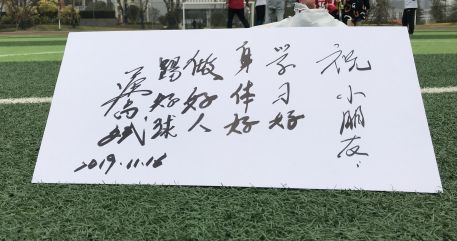 祝小朋友
学习好
身体好
做好人
踢好球
2019.11.16